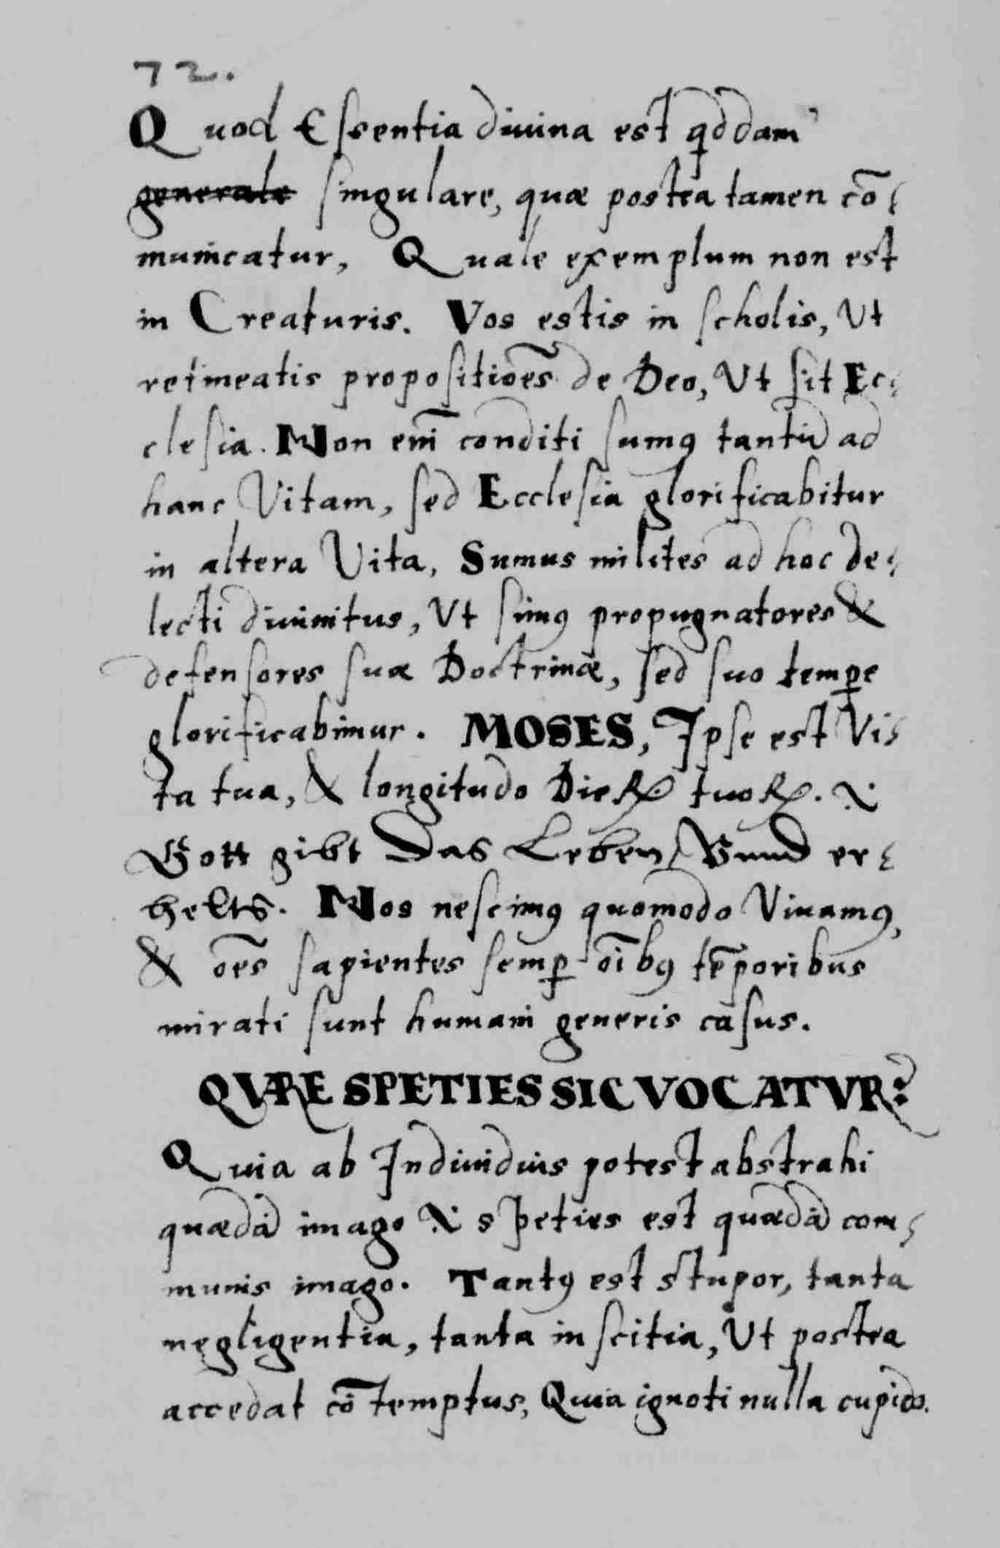 72.
Quod Essentia diuina est qddam
generale singulare, quæ postea tamen cō-
municatur, Quale exemplum non est
in Creaturis. Vos estis in scholis, Vt
retineatis propositiōes de Deo, Vt sit Ec-
clesia. Non em̄ conditi sumꝰ tantū ad
hanc Vitam, sed Ecclesia glorificabitur
in altera Vita, Sumus milites ad hoc de-
lecti diuinitus, Vt simꝰ propugnatores &
defensores suæ Doctrinæ, sed suo tempꝑe
glorificabimur. MOSES, Ipse est Vi-
ta tua, & longitudo Dieꝝ tuoꝝ. .N.
Gott gibt Das Leben/ Vnnd er-
helts. Nos nescimꝰ quomodo Viuamꝰ,
& oēs sapientes semꝑ oībꝰ tēporibus
mirati sunt humani generis casus.
QVARE SPETIES SIC VOCATVR?
Quia ab Indiuiduis potest abstrahi
quædā imago .N. speties est quædā com-
munis imago. Tantꝰ est stupor, tanta
negligentia, tanta inscitia, Vt postea
accedat cōtemptus, Quia ignoti nulla cupido.